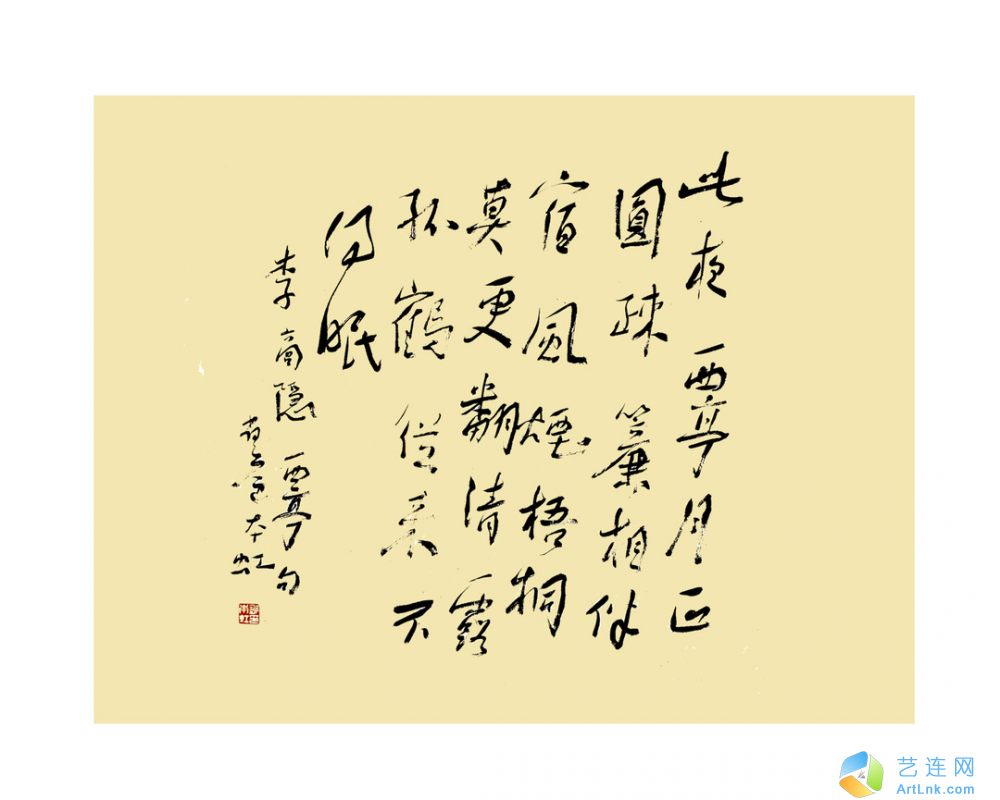 此夜西亭月正
圓疎簾相伴
宿風煙梧桐
莫更翻清露
孤鶴從来不
得眠
李商隐西亭句
本虹
艺连网
ArtLnk.com